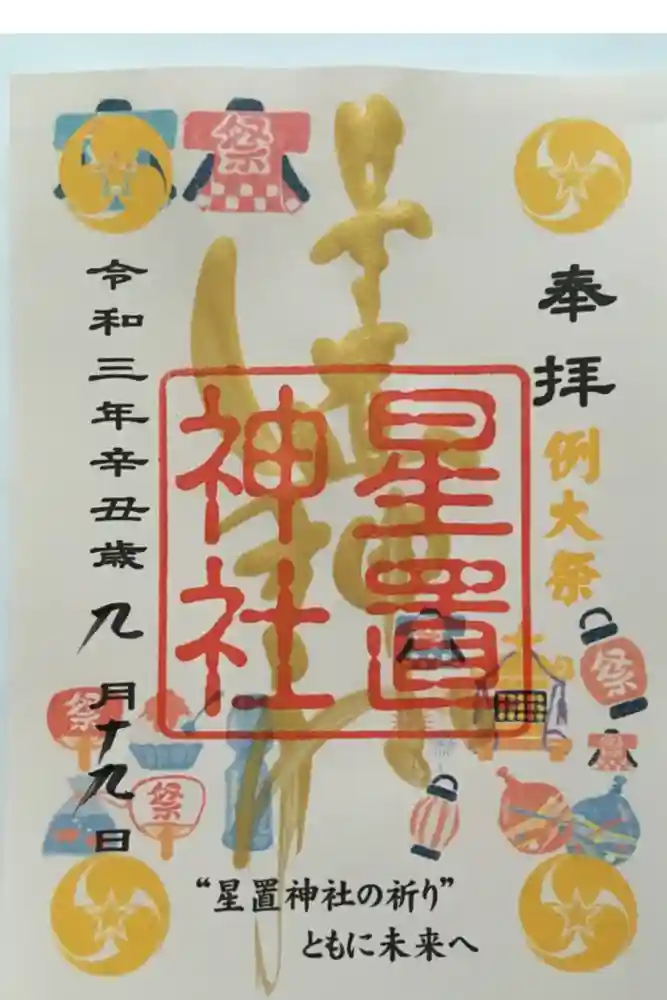 奉拝
例大祭
星置
神社
令和三年辛丑歳九月十九日
祭
祭
祭
祭
“星置神社の祈り”
ともに未来へ